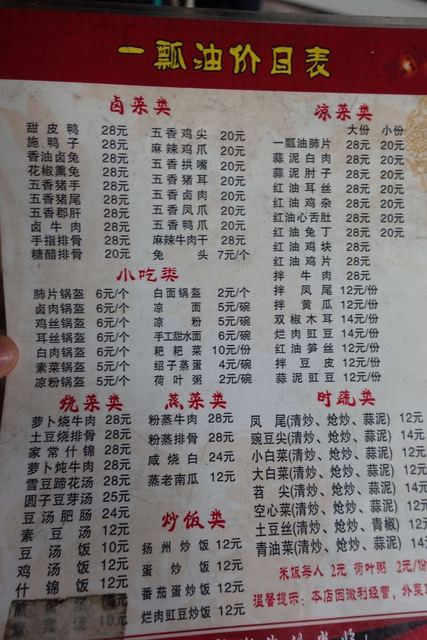 一瓢油价目表
卤菜类
甜皮鸭 28元
施鸭子 28元
香油卤兔 28元
花椒熏兔 28元
五香猪手 28元
五香猪尾 28元
五香郡肝 28元
卤牛肉 28元
手指排骨 28元
糖醋排骨 20元
五香鸡尖 20元
麻辣鸡爪 20元
五香拱嘴 20元
五香猪耳 20元
五香卤肉 20元
五香凤爪 20元
五香鸭爪 20元
麻辣牛肉干 28元
兔头 7元/个
凉菜类
大份 小份
一瓢油肺片 28元 20元
蒜泥白肉 28元 20元
蒜泥肘子 28元 20元
红油耳丝 28元 20元
红油鸡杂 28元 20元
红油心舌肚 28元 20元
红油兔丁 28元 20元
红油鸡块 28元
红油鸡片 28元
拌牛肉 28元
拌凤尾 12元/份
拌黄瓜 12元/份
双椒木耳 14元/份
烂肉豇豆 14元/份
红油笋丝 12元/份
拌豆皮 12元/份
蒜泥豇豆 12元/份
小吃类
肺片锅盔 6元/个
卤肉锅盔 6元/个
鸡丝锅盔 6元/个
耳丝锅盔 6元/个
白肉锅盔 6元/个
素菜锅盔 5元/个
凉粉锅盔 5元/个
白面锅盔 2元/个
凉面 5元/碗
凉粉 5元/碗
手工甜水面 6元/碗
粑粑菜 10元/份
绍子蒸蛋 4元/碗
荷叶粥 2元/碗
烧菜类
萝卜烧牛肉 28元
土豆烧排骨 28元
家常什锦 28元
萝卜炖牛肉 28元
雪豆蹄花汤 28元
圆子豆芽汤 25元
豆汤肥肠 24元
素豆汤 12元
豆汤饭 10元
鸡汤饭 12元
什锦饭 12元
蒸菜类
粉蒸牛肉 28元
粉蒸排骨 28元
咸烧白 24元
蒸老南瓜 12元
炒饭类
扬州炒饭 12元
蛋炒饭 12元
番茄蛋炒饭 12元
烂肉豇豆炒饭 12元
时蔬类
凤尾(清炒、炝炒、蒜泥) 12元
豌豆尖(清炒、炝炒、蒜泥) 14元
小白菜(清炒、炝炒、蒜泥) 12元
大白菜(清炒、炝炒、蒜泥) 12元
苕尖(清炒、炝炒、蒜泥) 12元
空心菜(清炒、炝炒、蒜泥) 12元
土豆丝(清炒、炝炒、青椒) 12元
青油菜(清炒、炝炒、蒜泥) 12元
米饭每人 2元 荷叶粥 2元/份
温馨提示：本店因微利经营，外菜